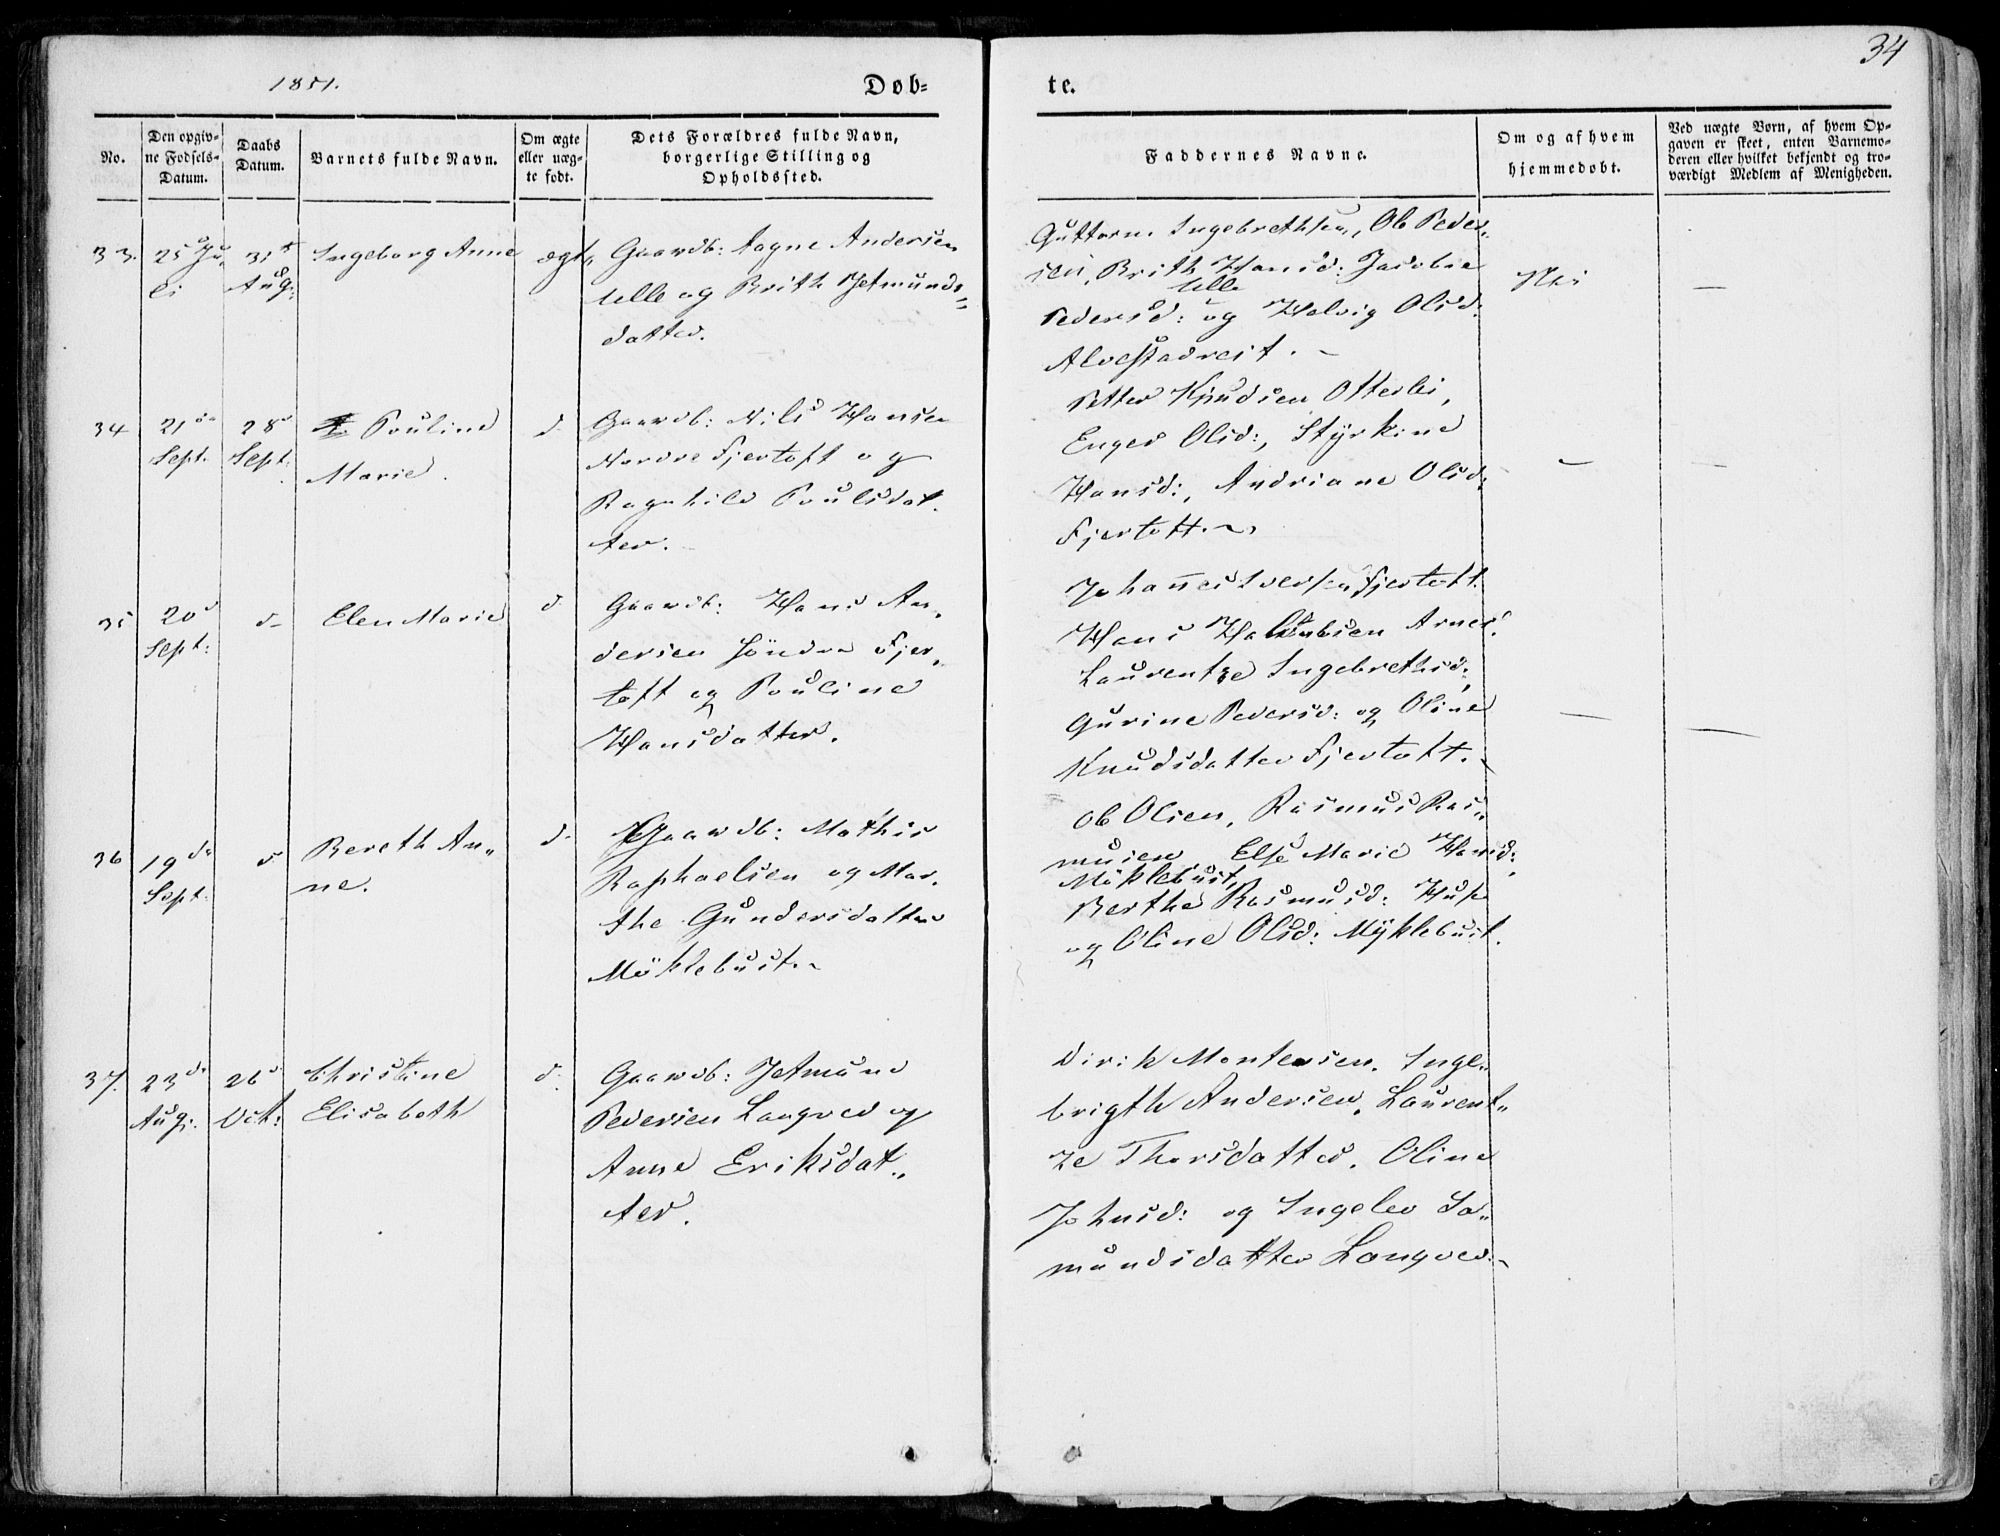 34
1851.
Døb-
te.
No.
Den opgiv-
ne Fødsels-
Datum.
Daabs
Datum.
Barnets fulde Navn.
Om ægte
eller uæg-
te født.
Dets Forældres fulde Navn,
borgerlige Stilling og
Opholdssted.
Faddernes Navne.
Om og af hvem
hjemmedøbt.
Ved uægte Børn, af hvem Op-
gaven er skeet, enten Barnemo-
deren eller hvilket bekjendt og tro-
værdigt Medlem af Menigheden.
33.
25 Ju
li
31t
Aug:
Ingeborg Anne
ægte
Gaardb: Aagne Andersen
Ulle og Brith Jetmunds-
datter.
Guttorm Ingebrethsen, Ole Peder-
sen, Brith Hansd: Jacobie
Ulle
Pedersd: og Helvig Olsd:
Alvestadreit. -
Nei
—
34
21de
Sept.
28d
Sept:
Pouline
Marie.
d.
Gaardb: Nils Hansen
Nordre Fjertoft og
Ragnhild Poulsdat-
ter.
Petter Knudsen Otterlei,
Enger Olsd:, Styrkine
Hansd:, Andriane Olsd:
Fjertoft. ~
—
—
35
20d
Sept:
d-
Elen Marie
d.
Gaardb: Hans An-
dersen Söndre Fjer-
toft og Pouline
Hansdatter.
Johannes Iversen Fjertoft.
Hans Arnes.
Laurentze Ingebrethsd:,
Gurine Pedersd: og Oline
Knudsdatter Fjertoft. -
—
—
36
19de
Sept:
d
Bereth An-
ne.
d.
Gaardb: Mathis
Raphaelsen og Mar-
the Gundersdatter
Möklebust. ~
Ole Olsen, Rasmus Ras-
musen Else Marie Hansd:
Möklebust,
Berthe Rasmusd: Huse
og Oline Olsd: Myklebust.
37.
23de
Aug:
26d
Oct:
Christine
Elisabeth
d.
Gaardb: Jetmund
Pedersen Langved og
Anne Eriksdat-
ter.
Dirik Montesen. Inge-
brigth Andersen, Laurent-
ze Thorsdatter, Oline
Johnsd: og Ingelev Sa-
mundsdatter Langved. -